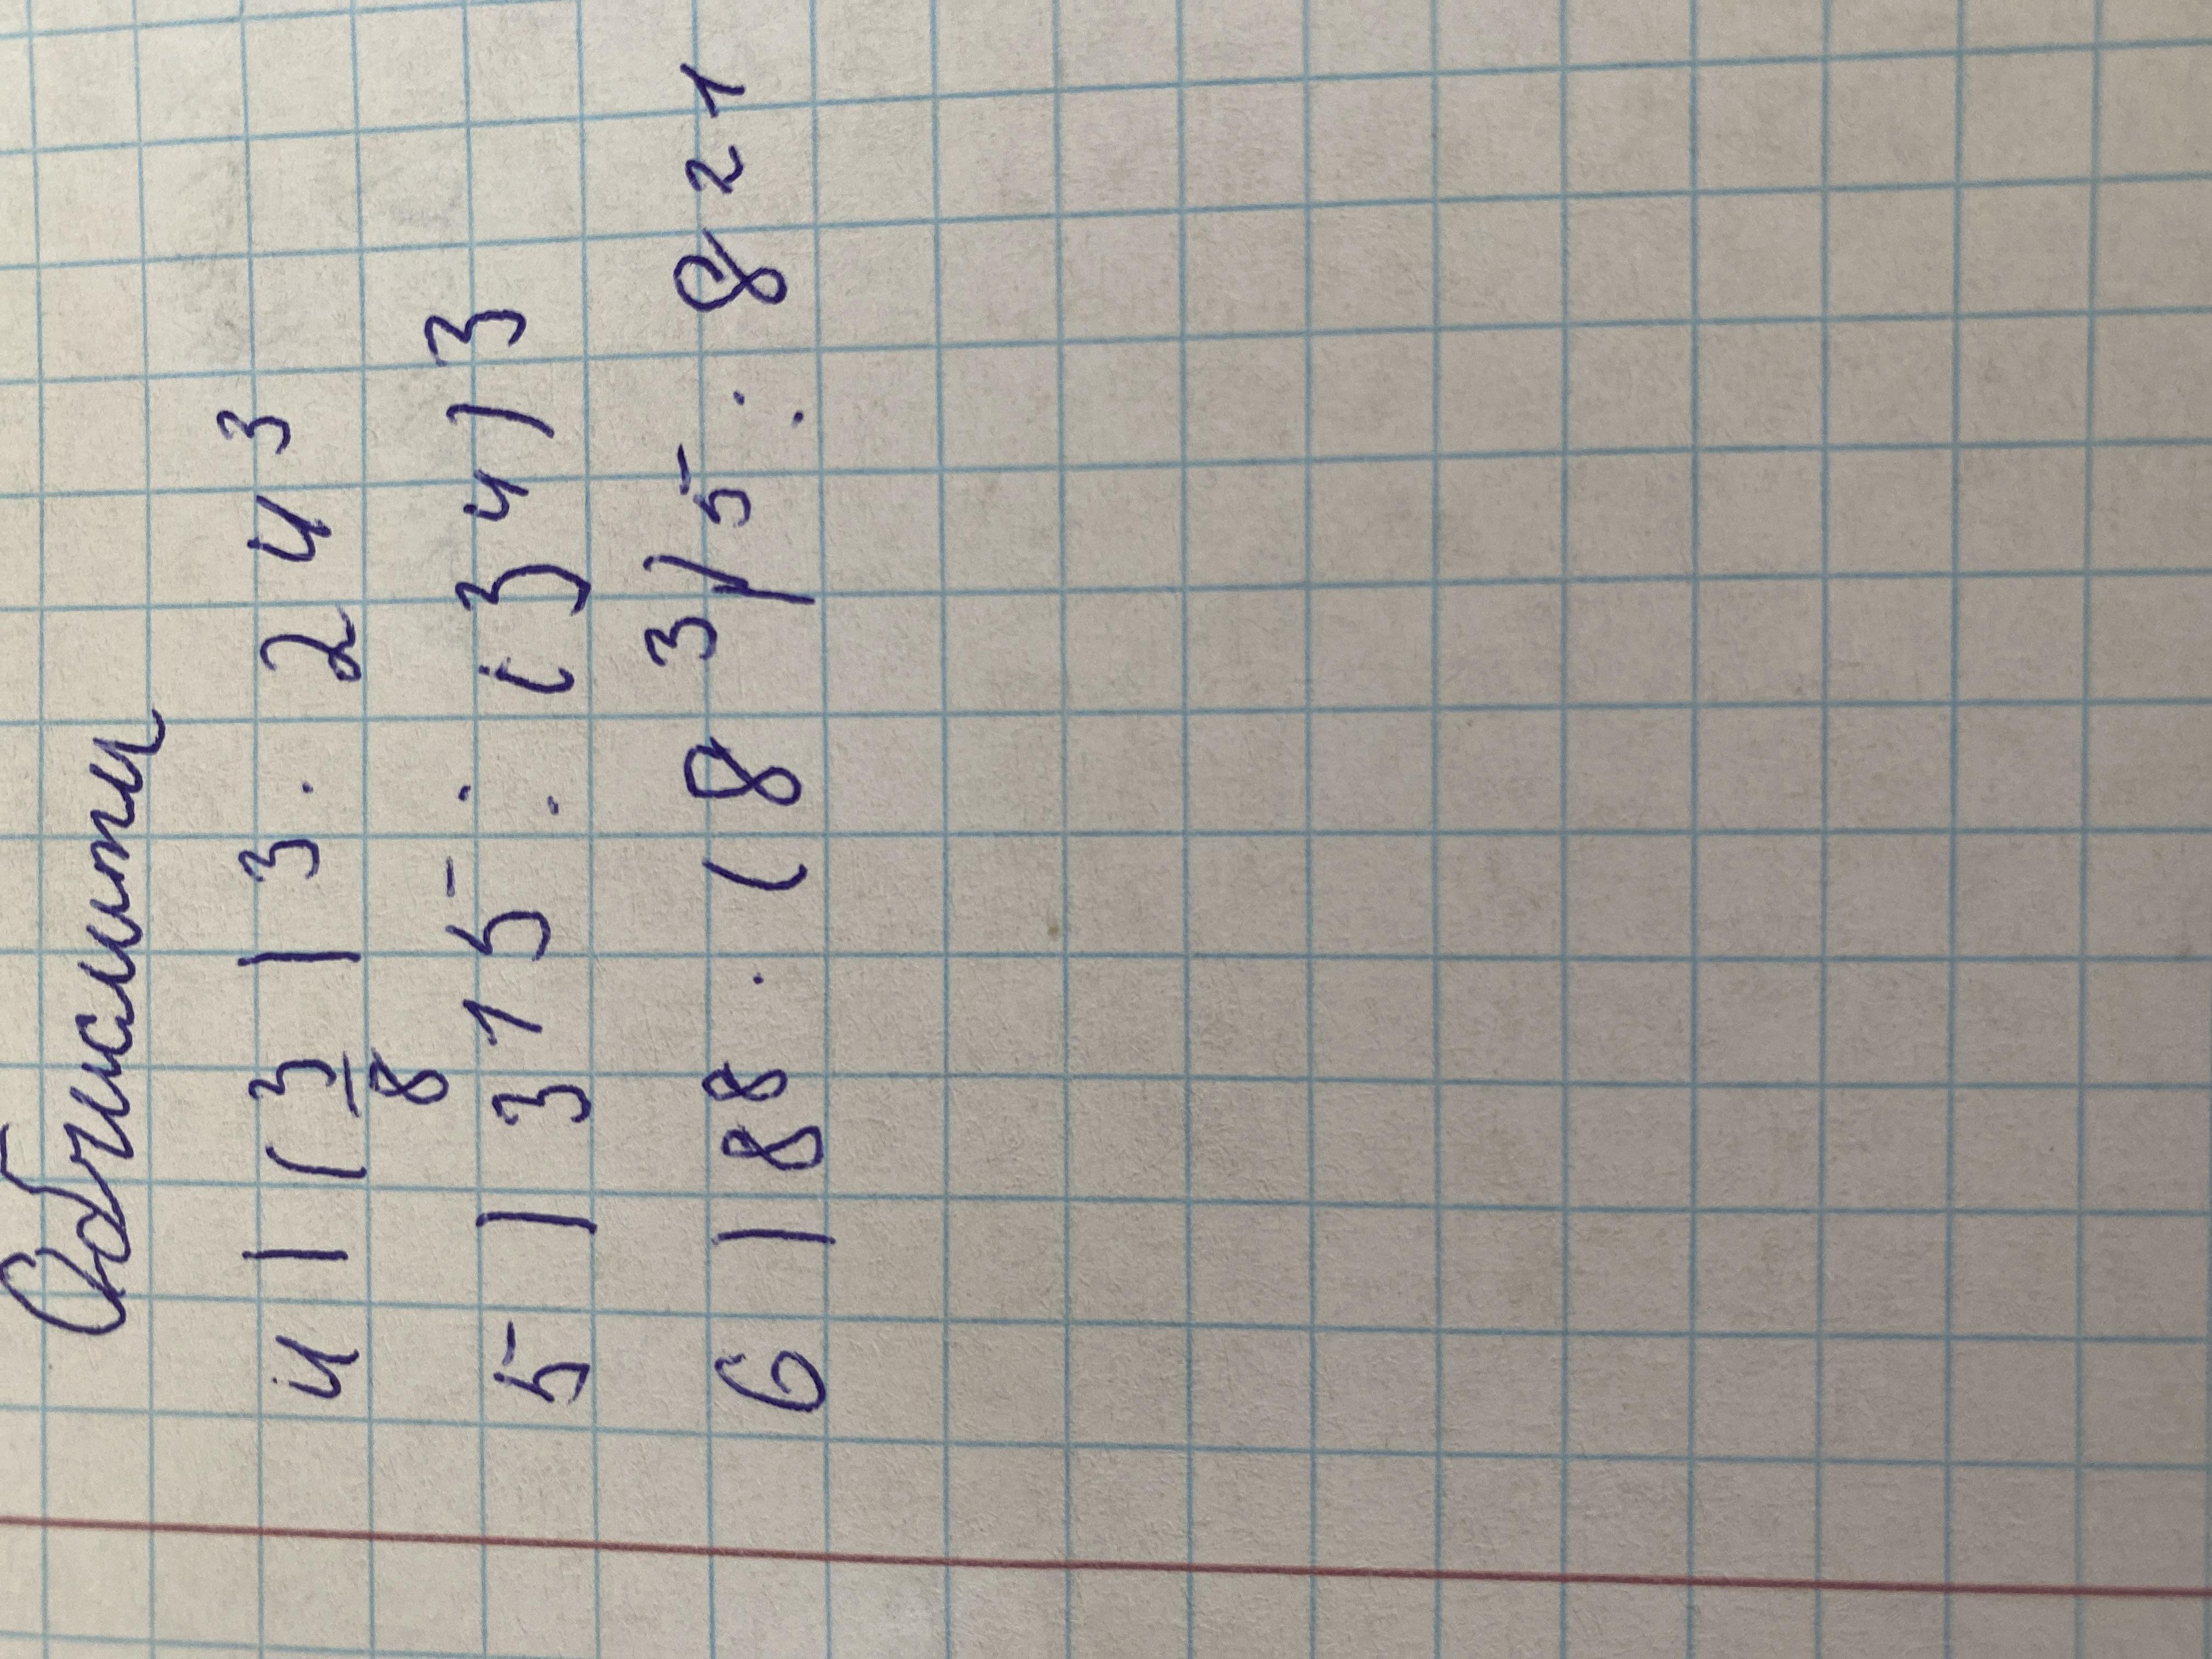 Обчислити
4) (3/8)³ · 24³
5) 3¹⁵ : (3⁴)³
6) 8⁸ · (8³)⁵ : 8²¹